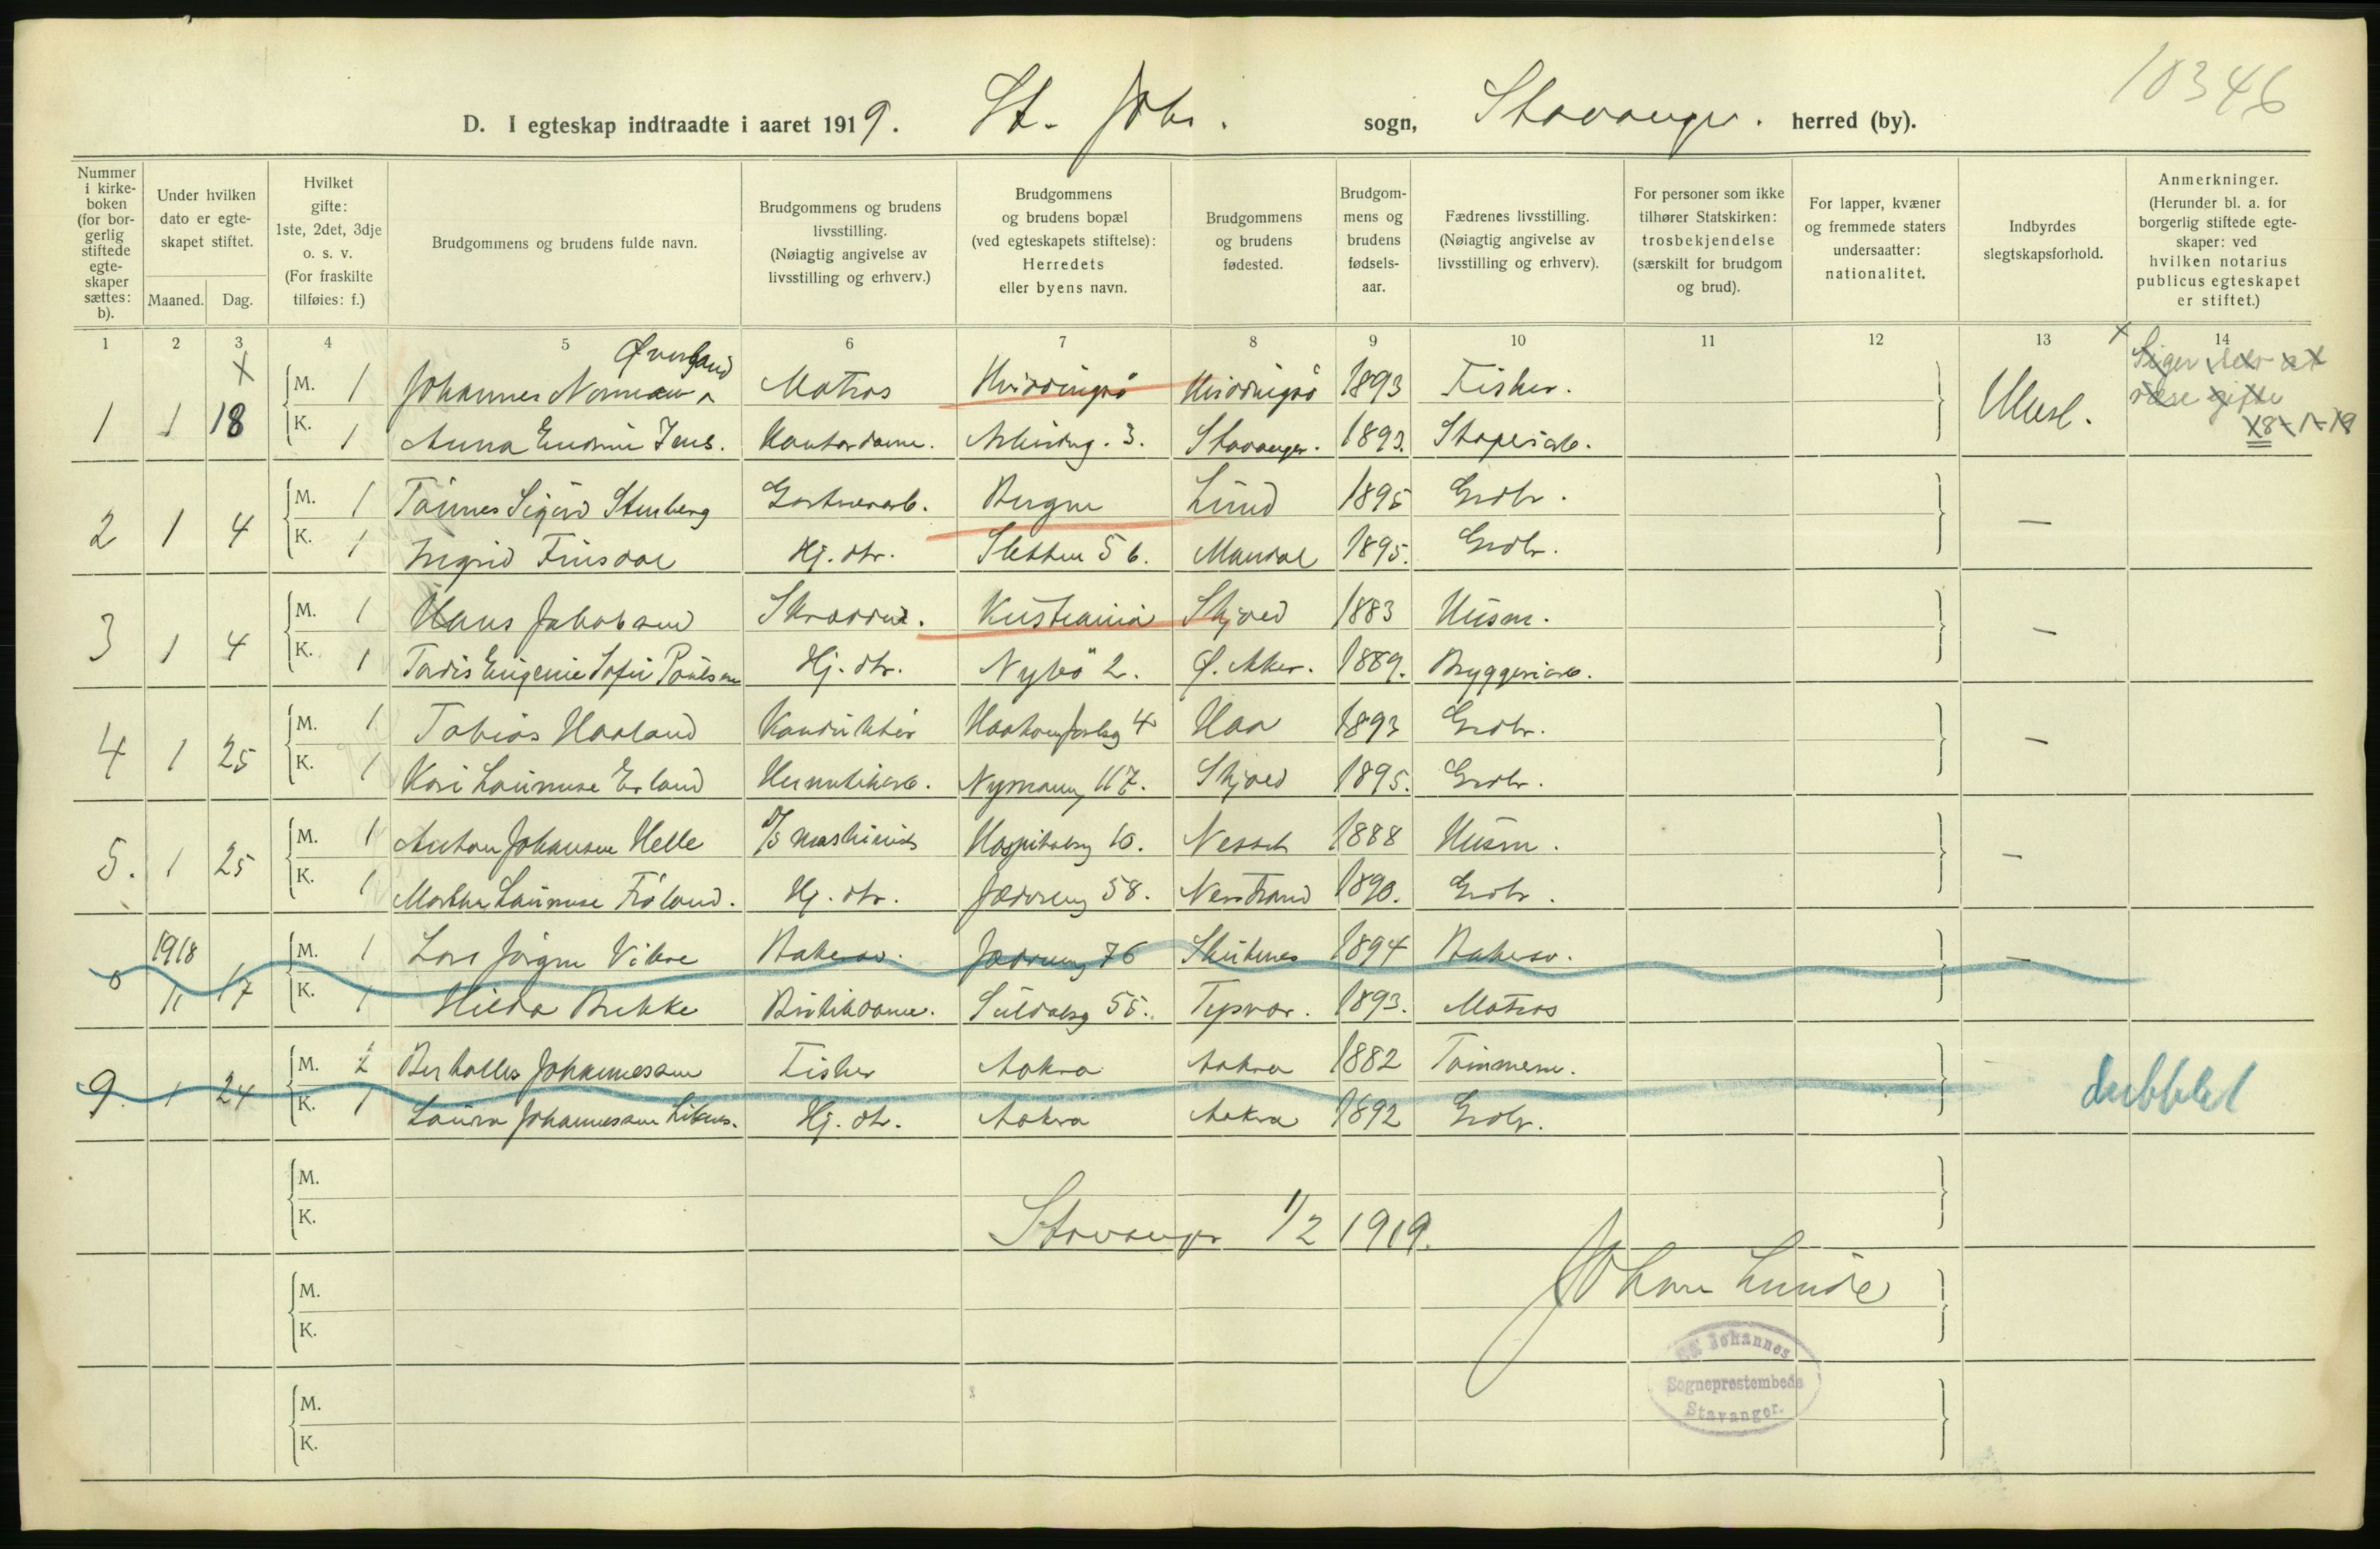 10346
D. I egteskap indtraadte i aaret 1919. St. Johs. sogn, Stavanger. herred (by).
Nummer i kirke-boken (for bor-gerlig stiftede egte-skaper sættes: b).
Under hvilken dato er egte-skapet stiftet.
Maaned. Dag.
Hvilket gifte: 1ste, 2det, 3dje o. s. v. (For fraskilte tilføies: f.)
Brudgommens og brudens fulde navn.
Brudgommens og brudens livsstilling. (Nøiagtig angivelse av livsstilling og erhverv.)
Brudgommens og brudens bopæl (ved egteskapets stiftelse): Herredets eller byens navn.
Brudgommens og brudens fødested.
Brudgom-mens og brudens fødsels-aar.
Fædrenes livsstilling. (Nøiagtig angivelse av livsstilling og erhverv).
For personer som ikke tilhører Statskirken: trosbekjendelse (særskilt for brudgom og brud).
For lapper, kvæner og fremmede staters undersaatter: nationalitet.
Indbyrdes slegtskapsforhold.
Anmerkninger. (Herunder bl. a. for borgerlig stiftede egte-skaper: ved hvilken notarius publicus egteskapet er stiftet.)
1 2 3 4 5 6 7 8 9 10 11 12 13 14
x Øverland
M. 1 Johannes Norman Matros Hviddingsö Hviddingsö 1893 Fisker.
1 1 18 K. 1 Anna Jens. Kontordame. 3. Stavanger. 1893.
18-1-19
M. 1 Tönnes Sigurd Stenberg Gartnerarb. Bergen Lund 1895 Grdbr.
2 1 4 K. 1 Ingrid Finsdal Hj. dtr. Sletten 56. Mandal 1895. Grdbr. —
M. 1 Hans Jakobsen Skrædder. Kristiania Skjold 1883 Husm.
3 1 4 K. 1 Tordis Eugenie Sofie Paulsen Hj. dtr. Nybö 2. Ø. Aker. 1889. Bryggeriarb. —
M. 1 Tobias Haaland Konduktör 4 Haa 1893 Grdbr.
4 1 25 K. 1 Kari Laurense Erland Hermetikarb. Nymansv 117. Skjold 1895. Grdbr. —
M. 1 Anton Johansen Helle D/S maskinist Hospitalsg 10. 1888 Husm.
5. 1 25 K. 1 Martha Laurense Fröland. Hj. dtr. Jædervg 58. Nerstrand 1890. Grdbr. —
1918 M. 1 Lars Jörgen Vikre Bakersv. Jædervg 76 Skudnes 1894 Bakersv.
11 17 K. 1 Hilda Bekke Butikdame. Suldalsg 55. Tysvær. 1893. Matros —
M. 2 Johannessen Fisker Aakra Aakra 1882 Tömmerm.
9. 1 24 K. 1 Laura Johannessen Liknes. Hj. dtr. Aakra Aakra 1892 Grdbr. dubblet
M.
K.
Stavanger 1/2 1919.
M. Johan Lunde
K.
St Johannes
Sogneprestembede
Stavanger.
M.
K.